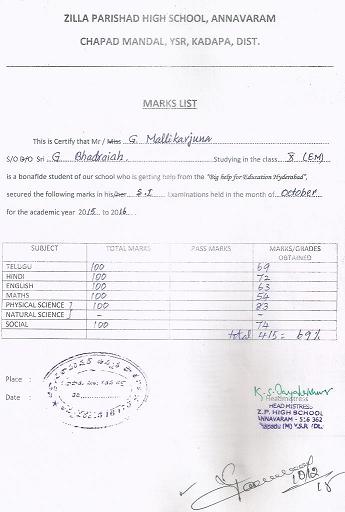 ZILLA PARISHAD HIGH SCHOOL, ANNAVARAM
CHAPAD MANDAL, YSR, KADAPA, DIST.
MARKS LIST
This is Certify that Mr / Miss G. Mallikarjuna
S/O D/O Sri G. Bhadraiah. Studying in the class X (EM)
is a bonafide student of our school who is getting help from the "Big help for Education Hyderabad"
secured the following marks in his/her S.I Examinations held in the month of October
for the academic year 2015 to 2016
SUBJECT TOTAL MARKS PASS MARKS MARKS/GRADES OBTAINED
TELUGU 100 69
HINDI 100 72
ENGLISH 100 63
MATHS 100 54
PHYSICAL SCIENCE 100 83
NATURAL SCIENCE - -
SOCIAL 100 74
total 415 = 69%
Place :
Date :
Headmistress
HEAD MISTRESS
Z.P. HIGH SCHOOL
ANNAVARAM - 516 362
10/12
15